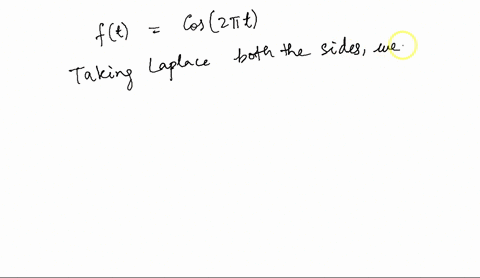 f(t) = Cos(2πt)
Taking Laplace both the sides, we